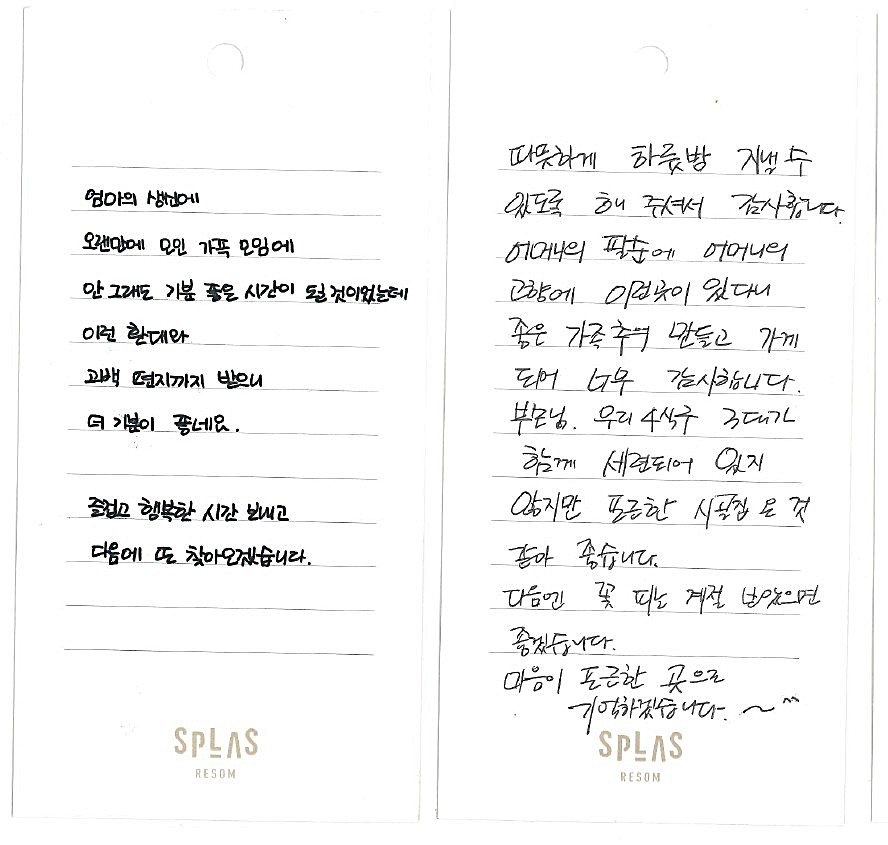 엄마의 생신에
오랜만에 모인 가족 모임에
안 그래도 기분 좋은 시간이 될 것이었는데
이런 환대와
고백 편지까지 받으니
더 기분이 좋네요.
즐겁고 행복한 시간 보내고
다음에 또 찾아오겠습니다.
SPLAS
RESOM
따뜻하게 하룻밤 지낼 수
있도록 해 주셔서 감사합니다.
어머니의 팔순에 어머니의
고향에 이런곳이 있다니
좋은 가족추억 만들고 가게
되어 너무 감사합니다.
부모님. 우리 4식구 3대가
함께 세련되어 있지
않지만 포근한 시골집 온 것
같아 좋습니다.
다음엔 꽃 피는 계절 왔으면
좋겠습니다.
마음이 포근한 곳으로
기억하겠습니다. ~ ^^
SPLAS
RESOM